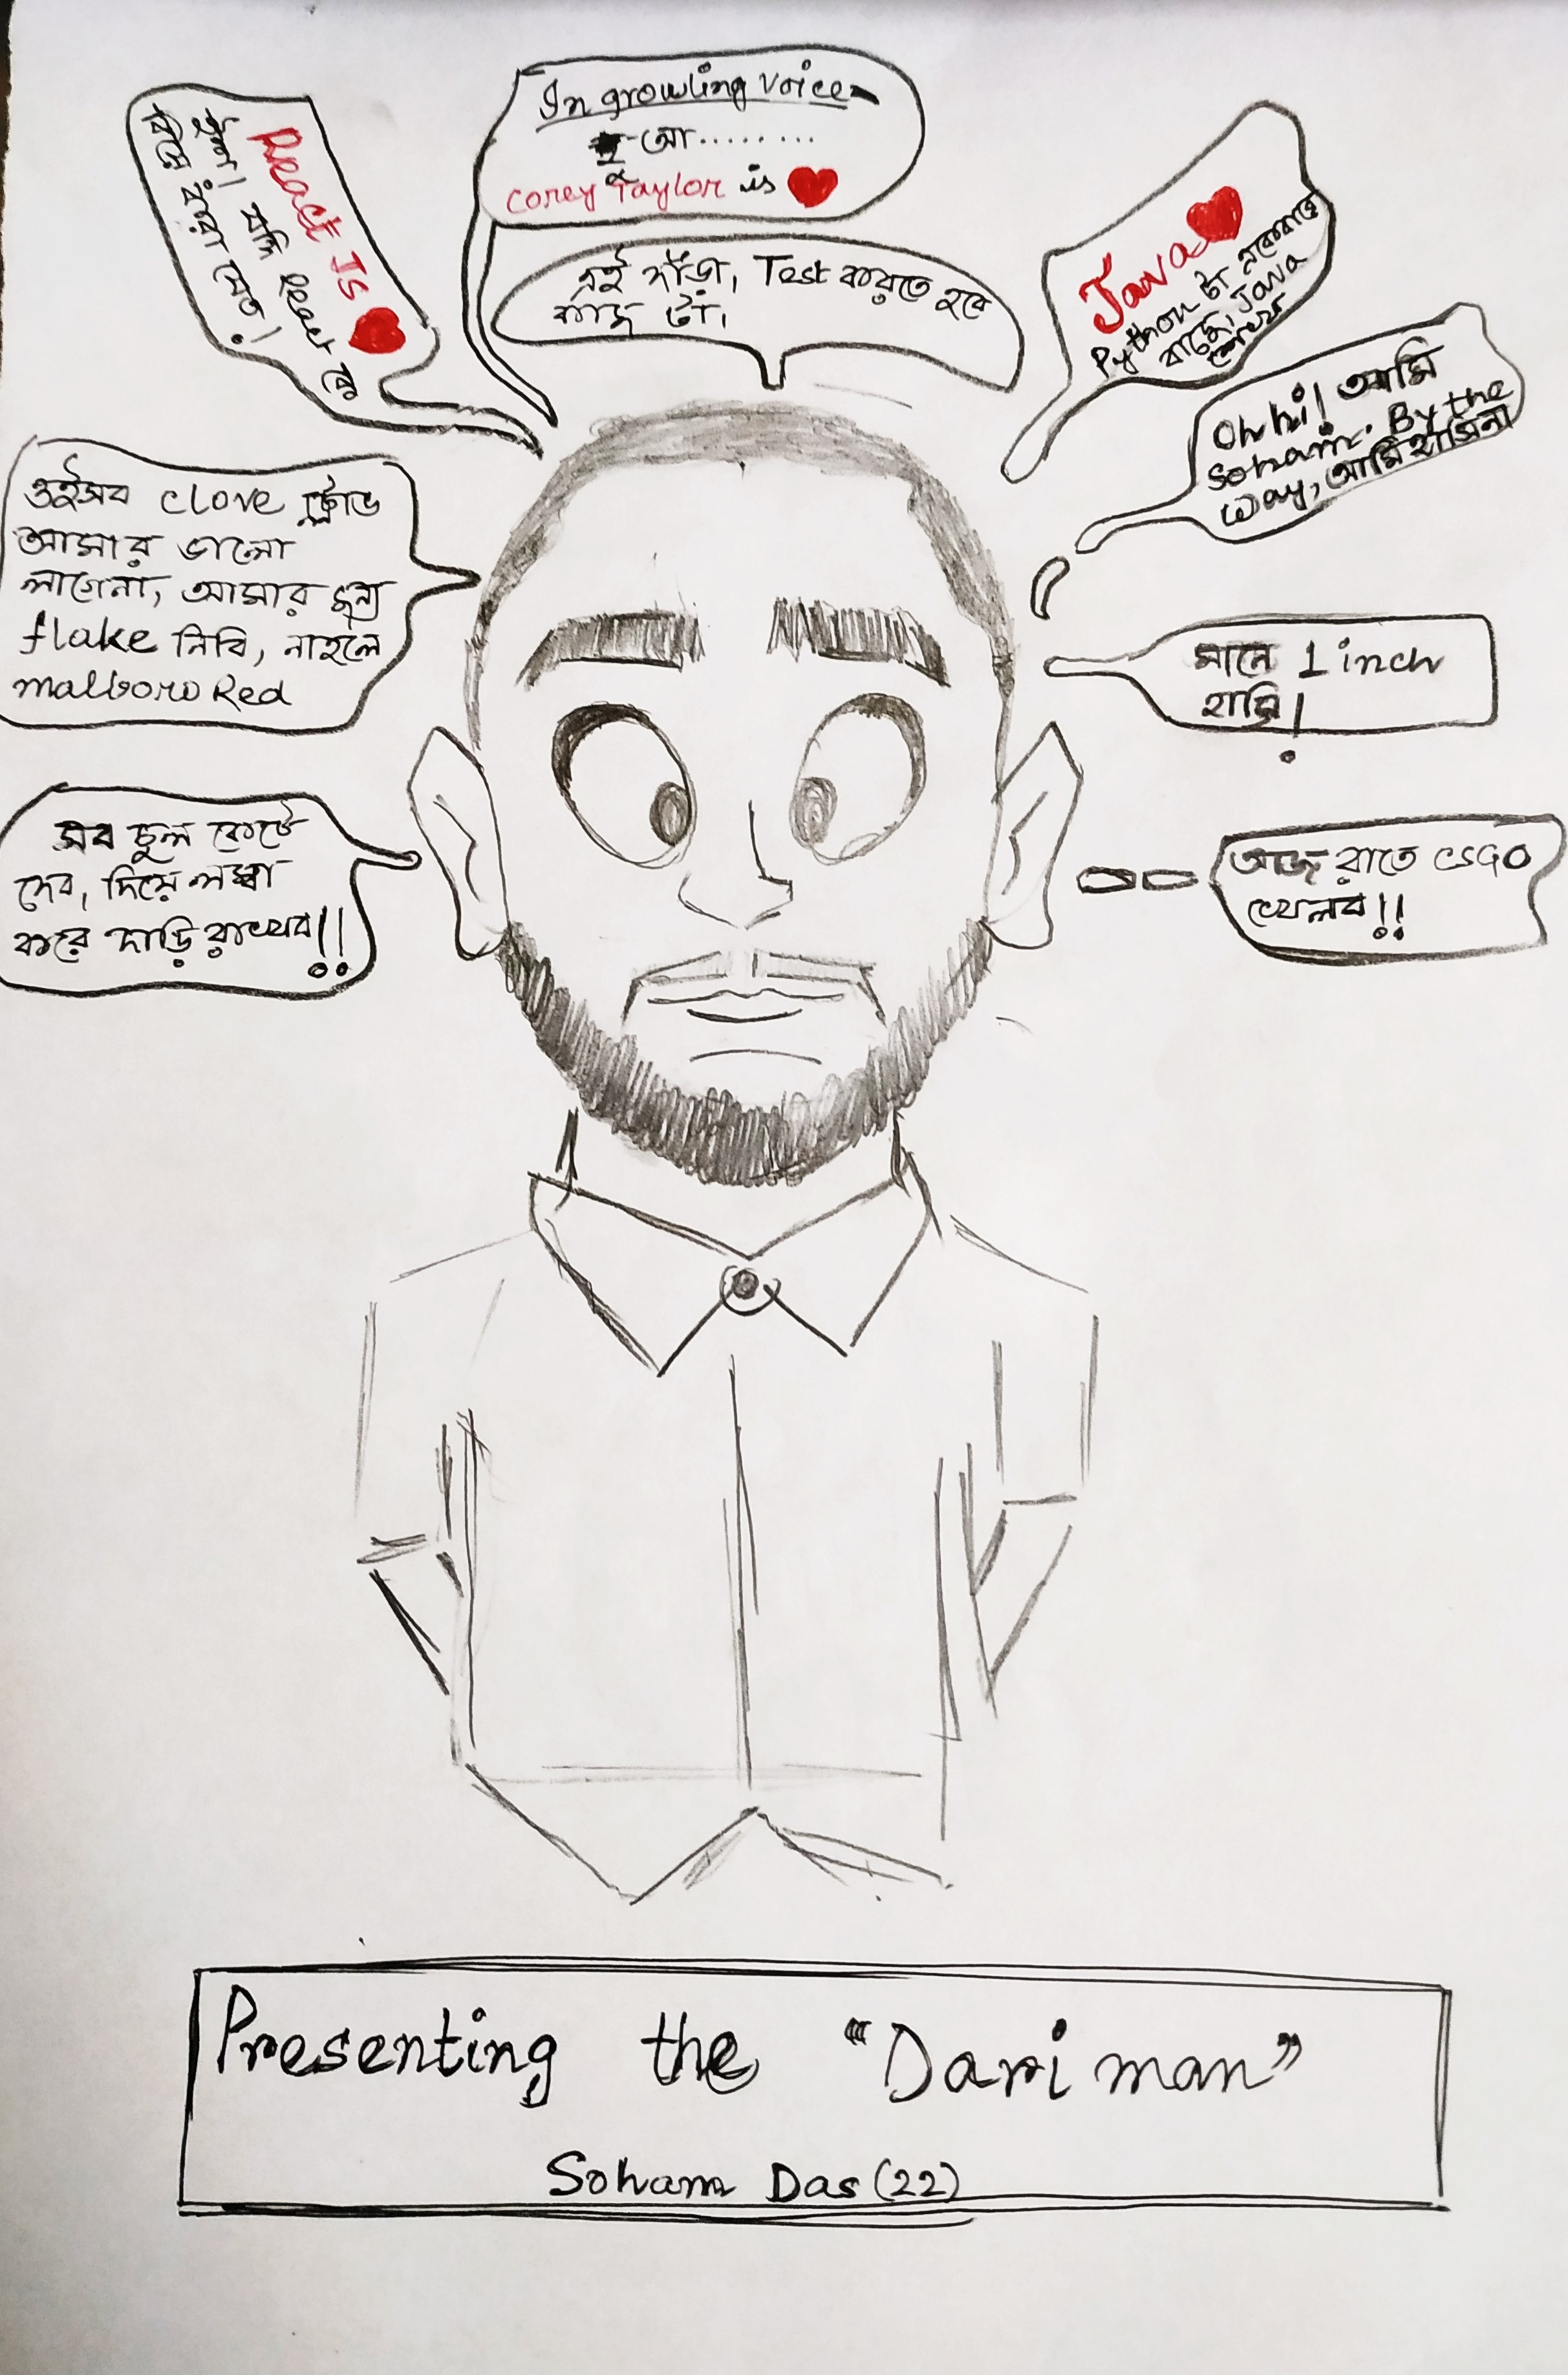 React Is
ইশ! যদি React কে
বিয়ে করা যেত!
In growling voice
আ........
Corey Taylor is
এই দাঁড়া, Test করতে হবে
কাজ টা,
Java
Python টা একেবারে
বাজে, Java
শেখ
Oh hi! আমি
Soham. By the
way, আমি হাসিনা
ওইসব clove
আমার ভালো
লাগেনা, আমার জন্য
flake নিবি, নাহলে
malboro Red
মানে 1 inch
হাসি!
সব চুল কেটে
দেব, দিয়ে লম্বা
করে দাড়ি রাখব!!
আজ রাতে CSGO
খেলব!!
Presenting the "Dari man"
Soham Das (22)